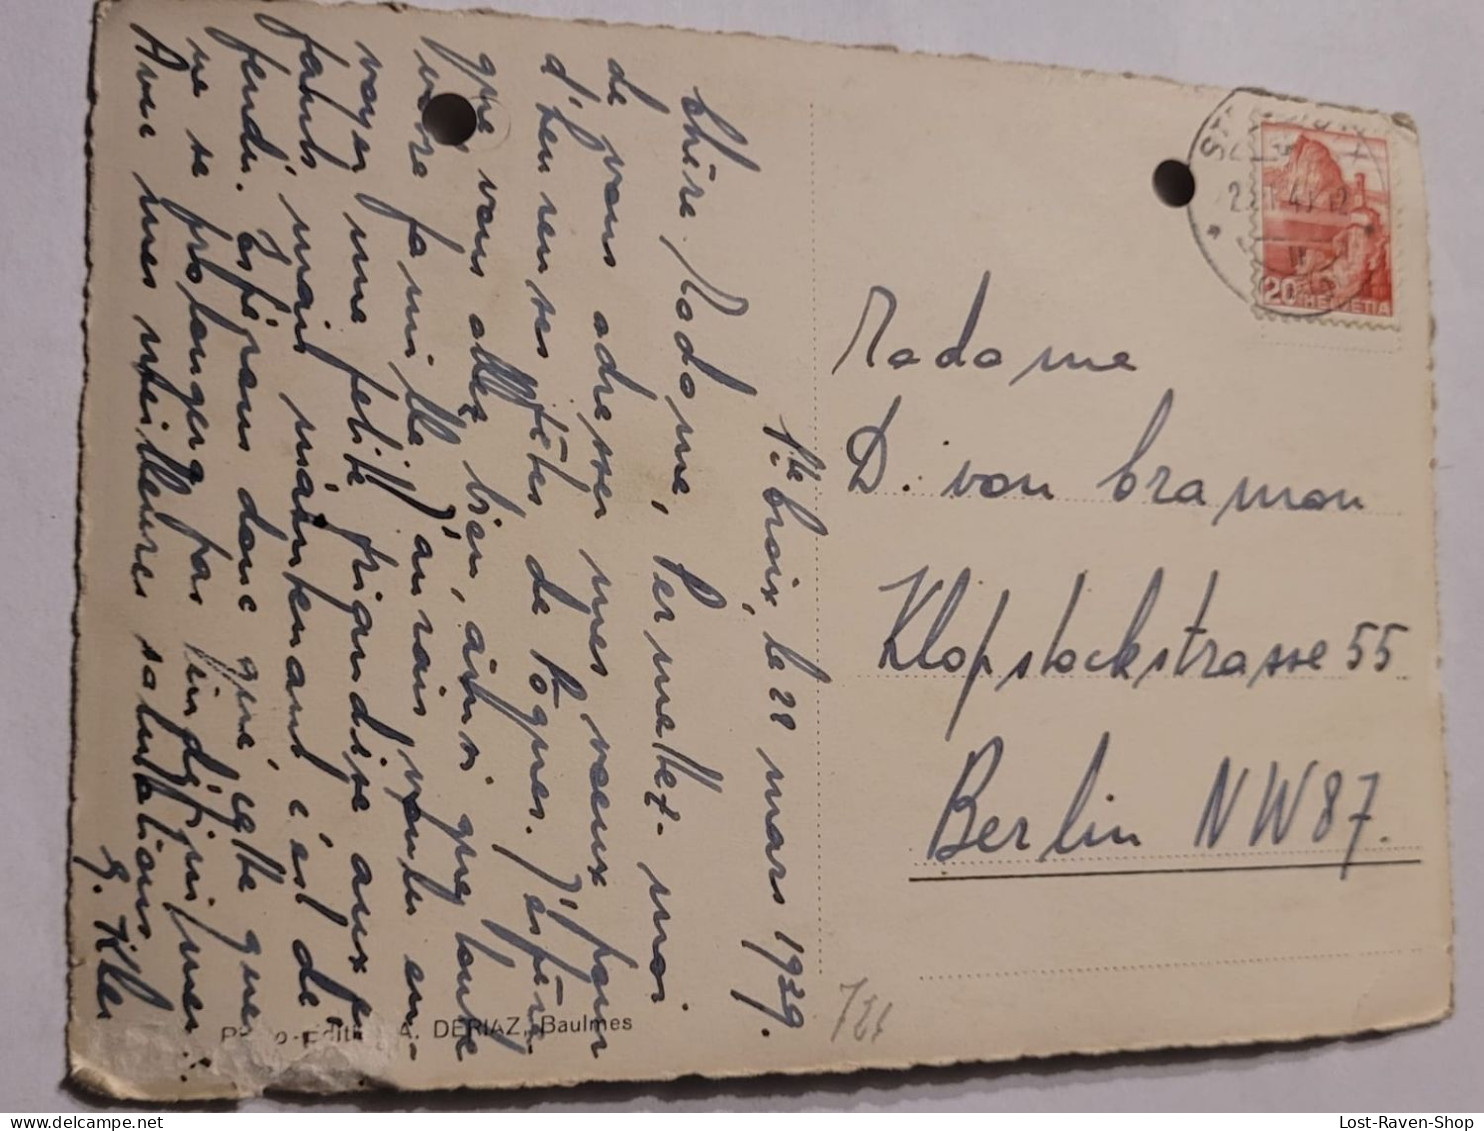 Ste Croix, le 28 mars 1939.
Chère Madame, Permettez-moi
de vous adresser mes vœux pour
d'heureuses fêtes de Pâques. J'espère
que vous allez bien, ainsi que toute
votre famille. J'aurais voulu en-
voyer une petite friandise aux en-
fants, mais maintenant c'est dé-
fendu. Espérons donc que cette guerre
ne se prolongera pas indéfiniment.
Avec mes meilleures salutations
Madame
D. von Cramon
Klopstockstrasse 55
Berlin NW87.
20 HELVETIA
A. DERIAZ, Baulmes
Lost-Raven-Shop